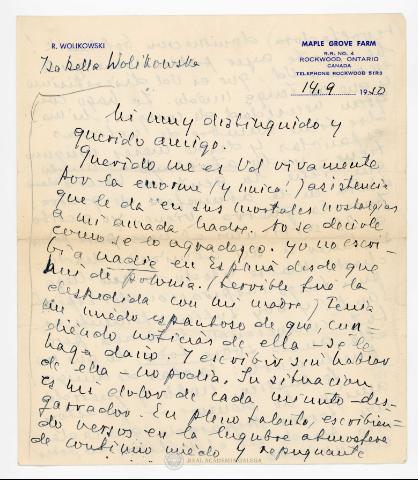 R. WOLIKOWSKI
MAPLE GROVE FARM
R.R. NO. 4
ROCKWOOD, ONTARIO
CANADA
TELEPHONE ROCKWOOD 51R3
Izabella Wolikowska
14.9 1950
Mi muy distinguido y
querido amigo.
Querido me es Vd vivamente
por la enorme (y unica!) asistencia
que le da en sus mortales nostalgias
a mi amada madre. No se decirle
como se lo agradesco. Yo no escri-
bi a nadie en España desde que
fui de Polonia. (Terrible fué la
despedida con mi madre) Tenia
un miedo espantoso de que, cun-
diendo noticias de ella - se le
haga daño. Y escribir sin hablar
de ella - no podia. Su situacion
es mi dolor de cada minuto - des-
garrador. En pleno talento, escribien-
do versos en la lugubre atmosfera
de continuo miedo y repugnante
REAL ACADEMIA GALEGA